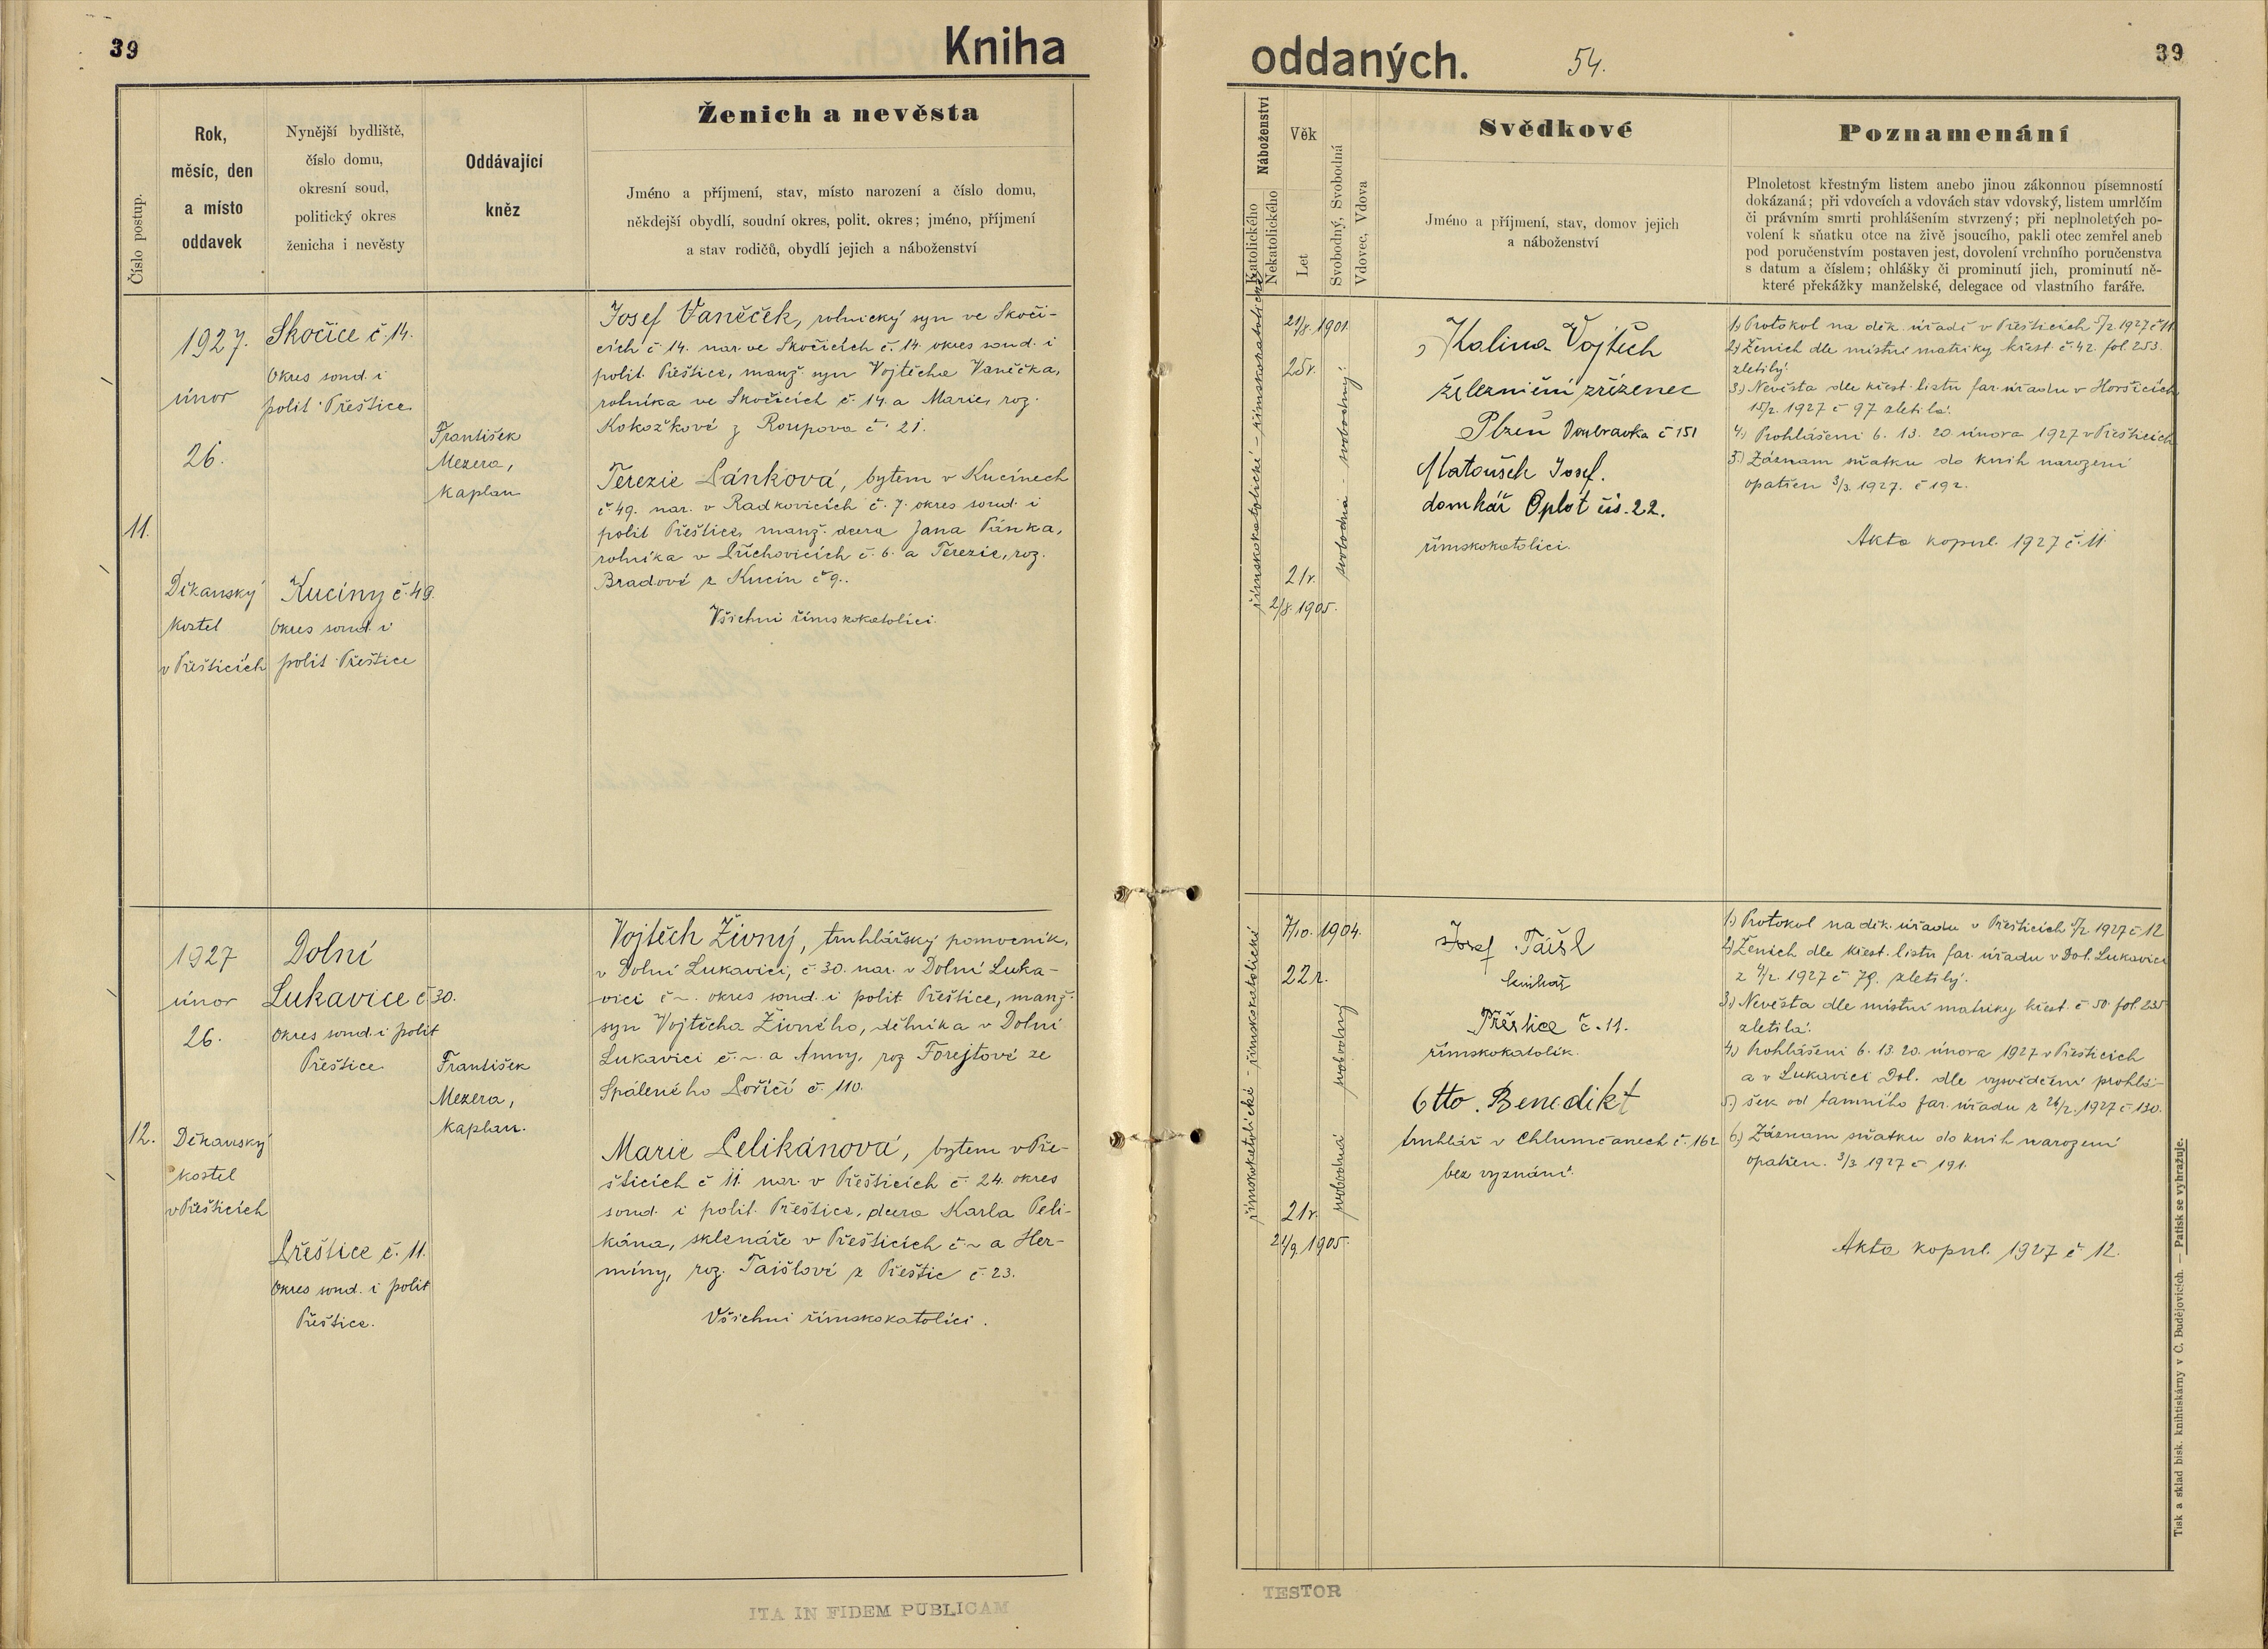 39
Kniha
Číslo postup.
Rok,
měsíc, den
a místo
oddavek
Nynější bydliště,
číslo domu,
okresní soud,
politický okres
ženicha i nevěsty
Oddávající
kněz
Ženich a nevěsta
Jméno a příjmení, stav, místo narození a číslo domu,
někdejší obydlí, soudní okres, polit. okres; jméno, příjmení
a stav rodičů, obydlí jejich a náboženství
11.
1927.
únor
26.
Děkanský
kostel
v Přešticích
Skočice č. 14.
Okres soud. i
polit. Přeštice
Kucíny č. 49.
Okres soud. i
polit. Přeštice
František
Mezera,
kaplan
Josef Vaněček, rolnický syn ve Skoči-
cích č. 14. nar. ve Skočicích č. 14. okres soud. i
polit. Přeštice, manž. syn Vojtěcha Vaněčka,
rolníka ve Skočicích č. 14. a Marie, roz.
Kokožkové z Roupova č. 21.
Terezie Pánková, bytem v Kucínech
č. 49. nar. v Radkovicích č. 7. okres soud. i
polit. Přeštice, manž. dcera Jana Pánka,
rolníka v Příchovicích č. 6. a Terezie, roz.
Bradové z Kucín č 9..
Všichni římskokatolíci.
12.
1927
únor
26.
Děkanský
kostel
v Přešticích
Dolní
Lukavice č 30.
Okres soud. i polit
Přeštice
Přeštice č. 11.
Okres soud. i polit
Přeštice.
František
Mezera,
kaplan.
Vojtěch Živný, truhlářský pomocník,
v Dolní Lukavici, č. 30. nar. v Dolní Luka-
vici č ~. okres soud. i polit. Přeštice, manž.
syn Vojtěcha Živného, dělníka v Dolní
Lukavici č. ~. a Anny, roz Forejtové ze
Spáleného Poříčí č. 110.
Marie Pelikánová, bytem v Pře-
šticích č 11. nar. v Přešticích č. 24. okres
soud. i polit. Přeštice, dcera Karla Peli-
kána, sklenáře v Přešticích č ~ a Her-
míny, roz. Taišlové z Přeštic č. 23.
Všichni římskokatolíci.
ITA IN FIDEM PUBLICAM
oddaných.
54.
39
Náboženství
Katolického
Nekatolického
Věk
Let
Svobodný, Svobodná
Vdovec, Vdova
Svědkové
Jméno a příjmení, stav, domov jejich
a náboženství
Poznamenání
Plnoletost křestným listem anebo jinou zákonnou písemností
dokázaná; při vdovcích a vdovách stav vdovský, listem umrlčím
či právním smrti prohlášením stvrzený; při neplnoletých po-
volení k sňatku otce na živě jsoucího, pakli otec zemřel aneb
pod poručenstvím postaven jest, dovolení vrchního poručenstva
s datum a číslem; ohlášky či prominutí jich, prominutí ně-
které překážky manželské, delegace od vlastního faráře.
římskokatolické - římskokatolické
21/8. 1901.
25r.
21r.
2/8. 1905.
svobodná - svobodný
Kalina Vojtěch
železniční zřízenec
Plzeň Doubravka č 151
Matoušek Josef.
domkář Oplot čís. 22.
římskokatolíci.
1.) Protokol na děk. úřadě v Přešticích 5/2. 1927 č 11.
2.) Ženich dle místní matriky křest. č. 42. fol. 253.
zletilý.
3.) Nevěsta dle křest. listu far. úřadu v Horšicích
15/2. 1927 č 97 zletilá.
4.) Prohlášeni 6. 13. 20. února 1927 v Přešticích
5.) Záznam sňatku do knih narození
opatřen 3/3. 1927. č 192.
Akta kopul. 1927 č. 11.
římskokatolické - římskokatolické
7/10. 1904.
22 r.
21r.
21/9. 1905.
svobodná svobodný
Josef Taišl
knihař
Přeštice č. 11.
římskokatolík.
Otto Benedikt
truhlář v Chlumčanech č. 162
bez vyznání.
1.) Protokol na děk. úřadu v Přešticích 5/2 1927 č 12
2.) Ženich dle křest. listu far. úřadu v Dol. Lukavici
z 4/2. 1927 č 79. zletilý.
3.) Nevěsta dle místní matriky křest. č 50. fol. 235
zletilá.
4.) Prohlášeni 6. 13. 20. února 1927 v Přešticích
a v Lukavici Dol. dle vysvědčení prohlá-
5.) šek od tamního far. úřadu z 26/2. 1927 č 130.
6.) Záznam sňatku do knih narození
opatřen. 3/3 1927 č 191.
Akta kopul. 1927 č 12.
Tisk a sklad bisk. knihtiskárny v Č. Budějovicích. — Patisk se vyhražuje.
TESTOR